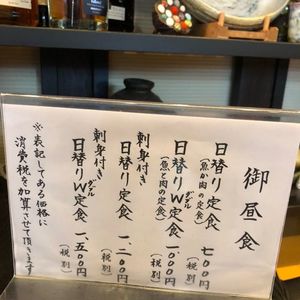 御昼食
日替り定食 七〇〇円
(魚か肉の定食) (税別)
日替りW定食 一、〇〇〇円
ダブル
(魚と肉の定食) (税別)
刺身付き
日替り定食 一、二〇〇円
(税別)
刺身付き
日替りW定食 一、五〇〇円
ダブル
(税別)
※表記してある価格に
消費税を加算させて頂きます